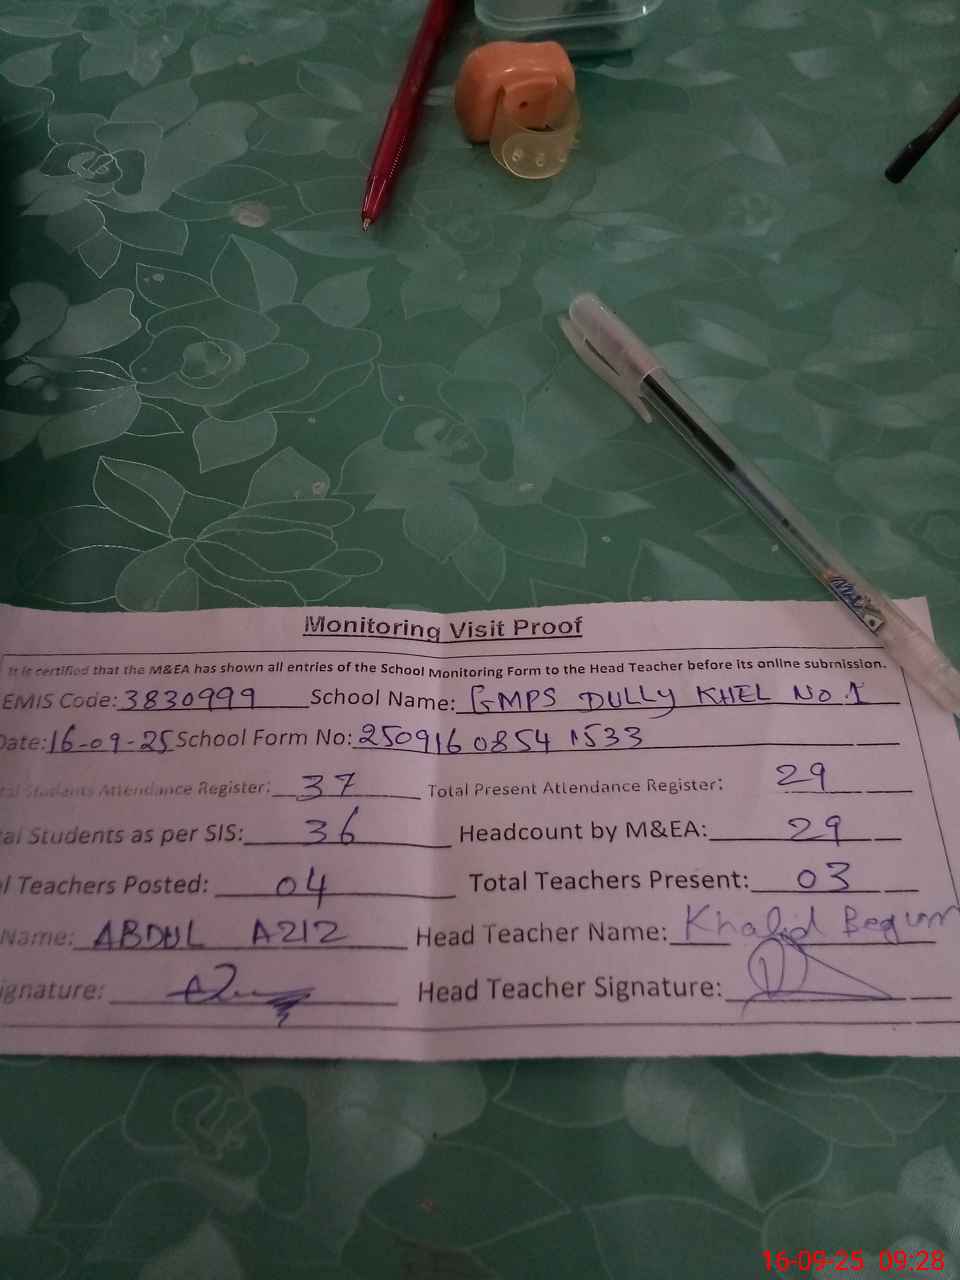 Monitoring Visit Proof
It is certified that the M&EA has shown all entries of the School Monitoring Form to the Head Teacher before its online submission.
EMIS Code: 3830999 School Name: GMPS DULLY KHEL NO.1
Date: 16-09-25 School Form No: 250916 0854 1533
tal Students Attendance Register: 37 Total Present Attendance Register: 29
al Students as per SIS: 36 Headcount by M&EA: 29
l Teachers Posted: 04 Total Teachers Present: 03
Name: ABDUL AZIZ Head Teacher Name: Khalid Begum
ignature: Head Teacher Signature:
16-09-25 09:28